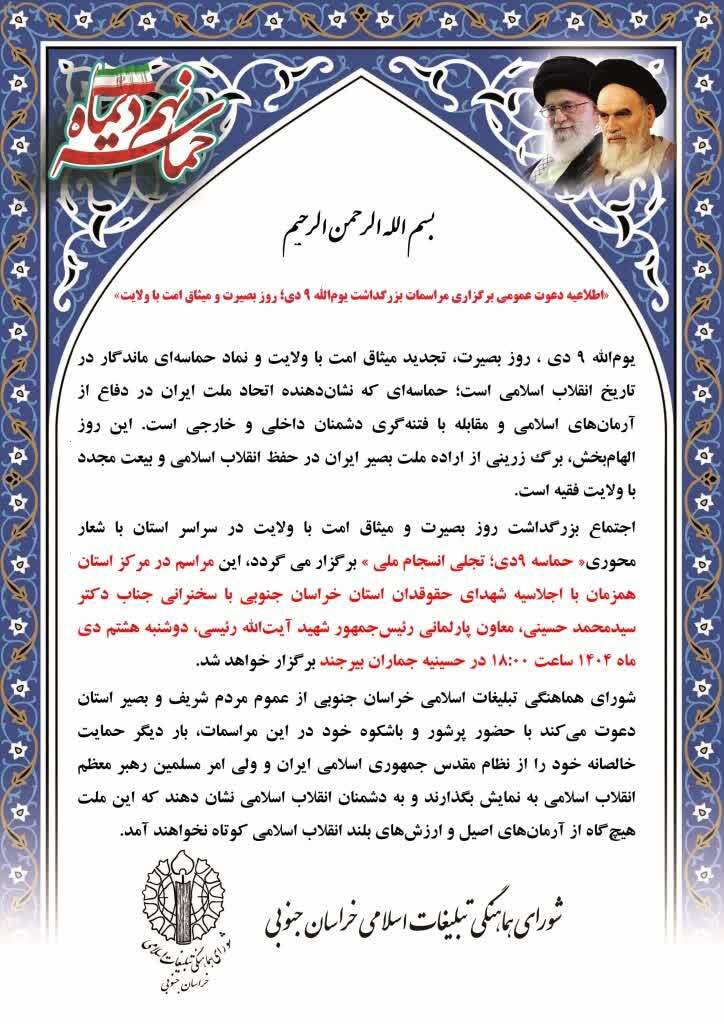 حماسه نهم دیماه
بسم الله الرحمن الرحیم
«اطلاعیه دعوت عمومی برگزاری مراسمات بزرگداشت یوم‌الله ۹ دی؛ روز بصیرت و میثاق امت با ولایت»
یوم‌الله ۹ دی ، روز بصیرت، تجدید میثاق امت با ولایت و نماد حماسه‌ای ماندگار در
تاریخ انقلاب اسلامی است؛ حماسه‌ای که نشان‌دهنده اتحاد ملت ایران در دفاع از
آرمان‌های اسلامی و مقابله با فتنه‌گری دشمنان داخلی و خارجی است. این روز
الهام‌بخش، برگ زرینی از اراده ملت بصیر ایران در حفظ انقلاب اسلامی و بیعت مجدد
با ولایت فقیه است.
اجتماع بزرگداشت روز بصیرت و میثاق امت با ولایت در سراسر استان با شعار
محوری« حماسه ۹دی؛ تجلی انسجام ملی » برگزار می گردد، این مراسم در مرکز استان
همزمان با اجلاسیه شهدای حقوقدان استان خراسان جنوبی با سخنرانی جناب دکتر
سیدمحمد حسینی، معاون پارلمانی رئیس‌جمهور شهید آیت‌الله رئیسی، دوشنبه هشتم دی
ماه ۱۴۰۴ ساعت ۱۸:۰۰ در حسینیه جماران بیرجند برگزار خواهد شد.
شورای هماهنگی تبلیغات اسلامی خراسان جنوبی از عموم مردم شریف و بصیر استان
دعوت می‌کند با حضور پرشور و باشکوه خود در این مراسمات، بار دیگر حمایت
خالصانه خود را از نظام مقدس جمهوری اسلامی ایران و ولی امر مسلمین رهبر معظم
انقلاب اسلامی به نمایش بگذارند و به دشمنان انقلاب اسلامی نشان دهند که این ملت
هیچ‌گاه از آرمان‌های اصیل و ارزش‌های بلند انقلاب اسلامی کوتاه نخواهند آمد.
شورای هماهنگی تبلیغات اسلامی خراسان جنوبی
شورای هماهنگی تبلیغات اسلامی
خراسان جنوبی